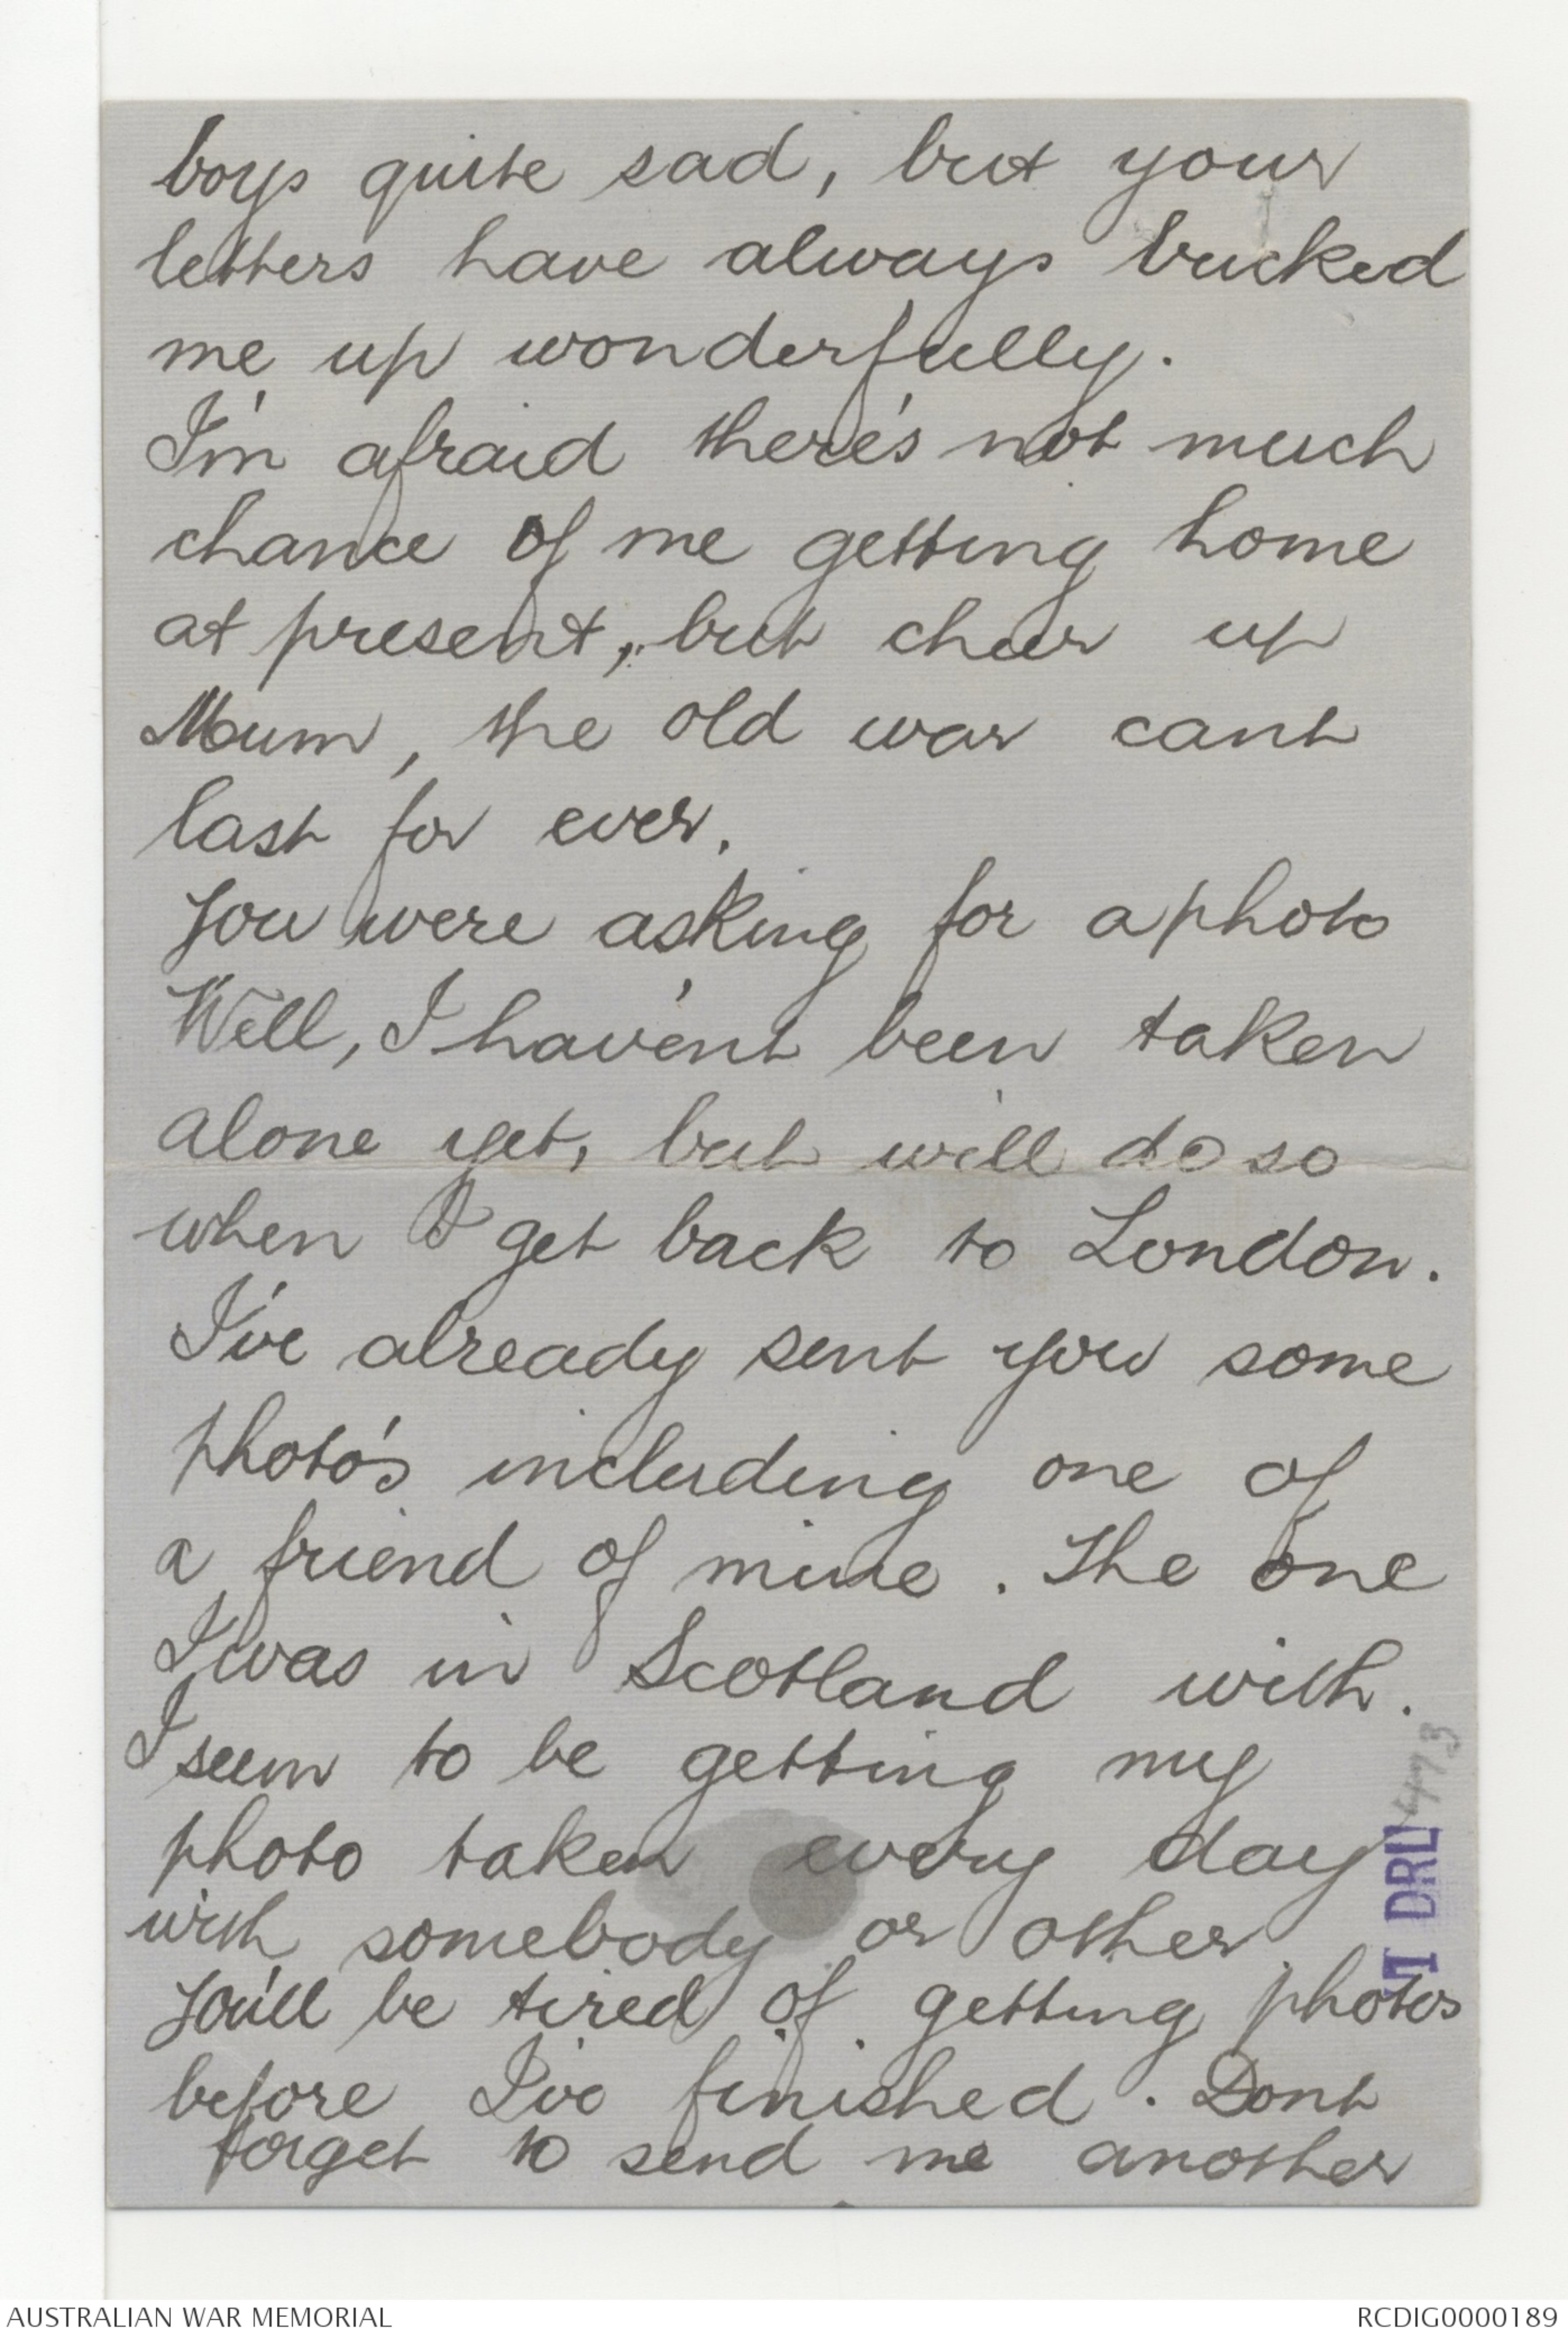 boys quite sad, but your
letters have always bucked
me up wonderfully.
I'm afraid there's not much
chance of me getting home
at present, but cheer up
Mum, the old war cant
last for ever.
You were asking for a photo
Well, I haven't been taken
alone yet, but will do so
when I get back to London.
I've already sent you some
photo's including one of
a friend of mine. The one
I was in Scotland with.
I seem to be getting my
photo taken every day
with somebody or other
You'll be tired of getting photos
before I've finished. Dont
forget to send me another
I DRL
AUSTRALIAN WAR MEMORIAL
RCDIG0000189